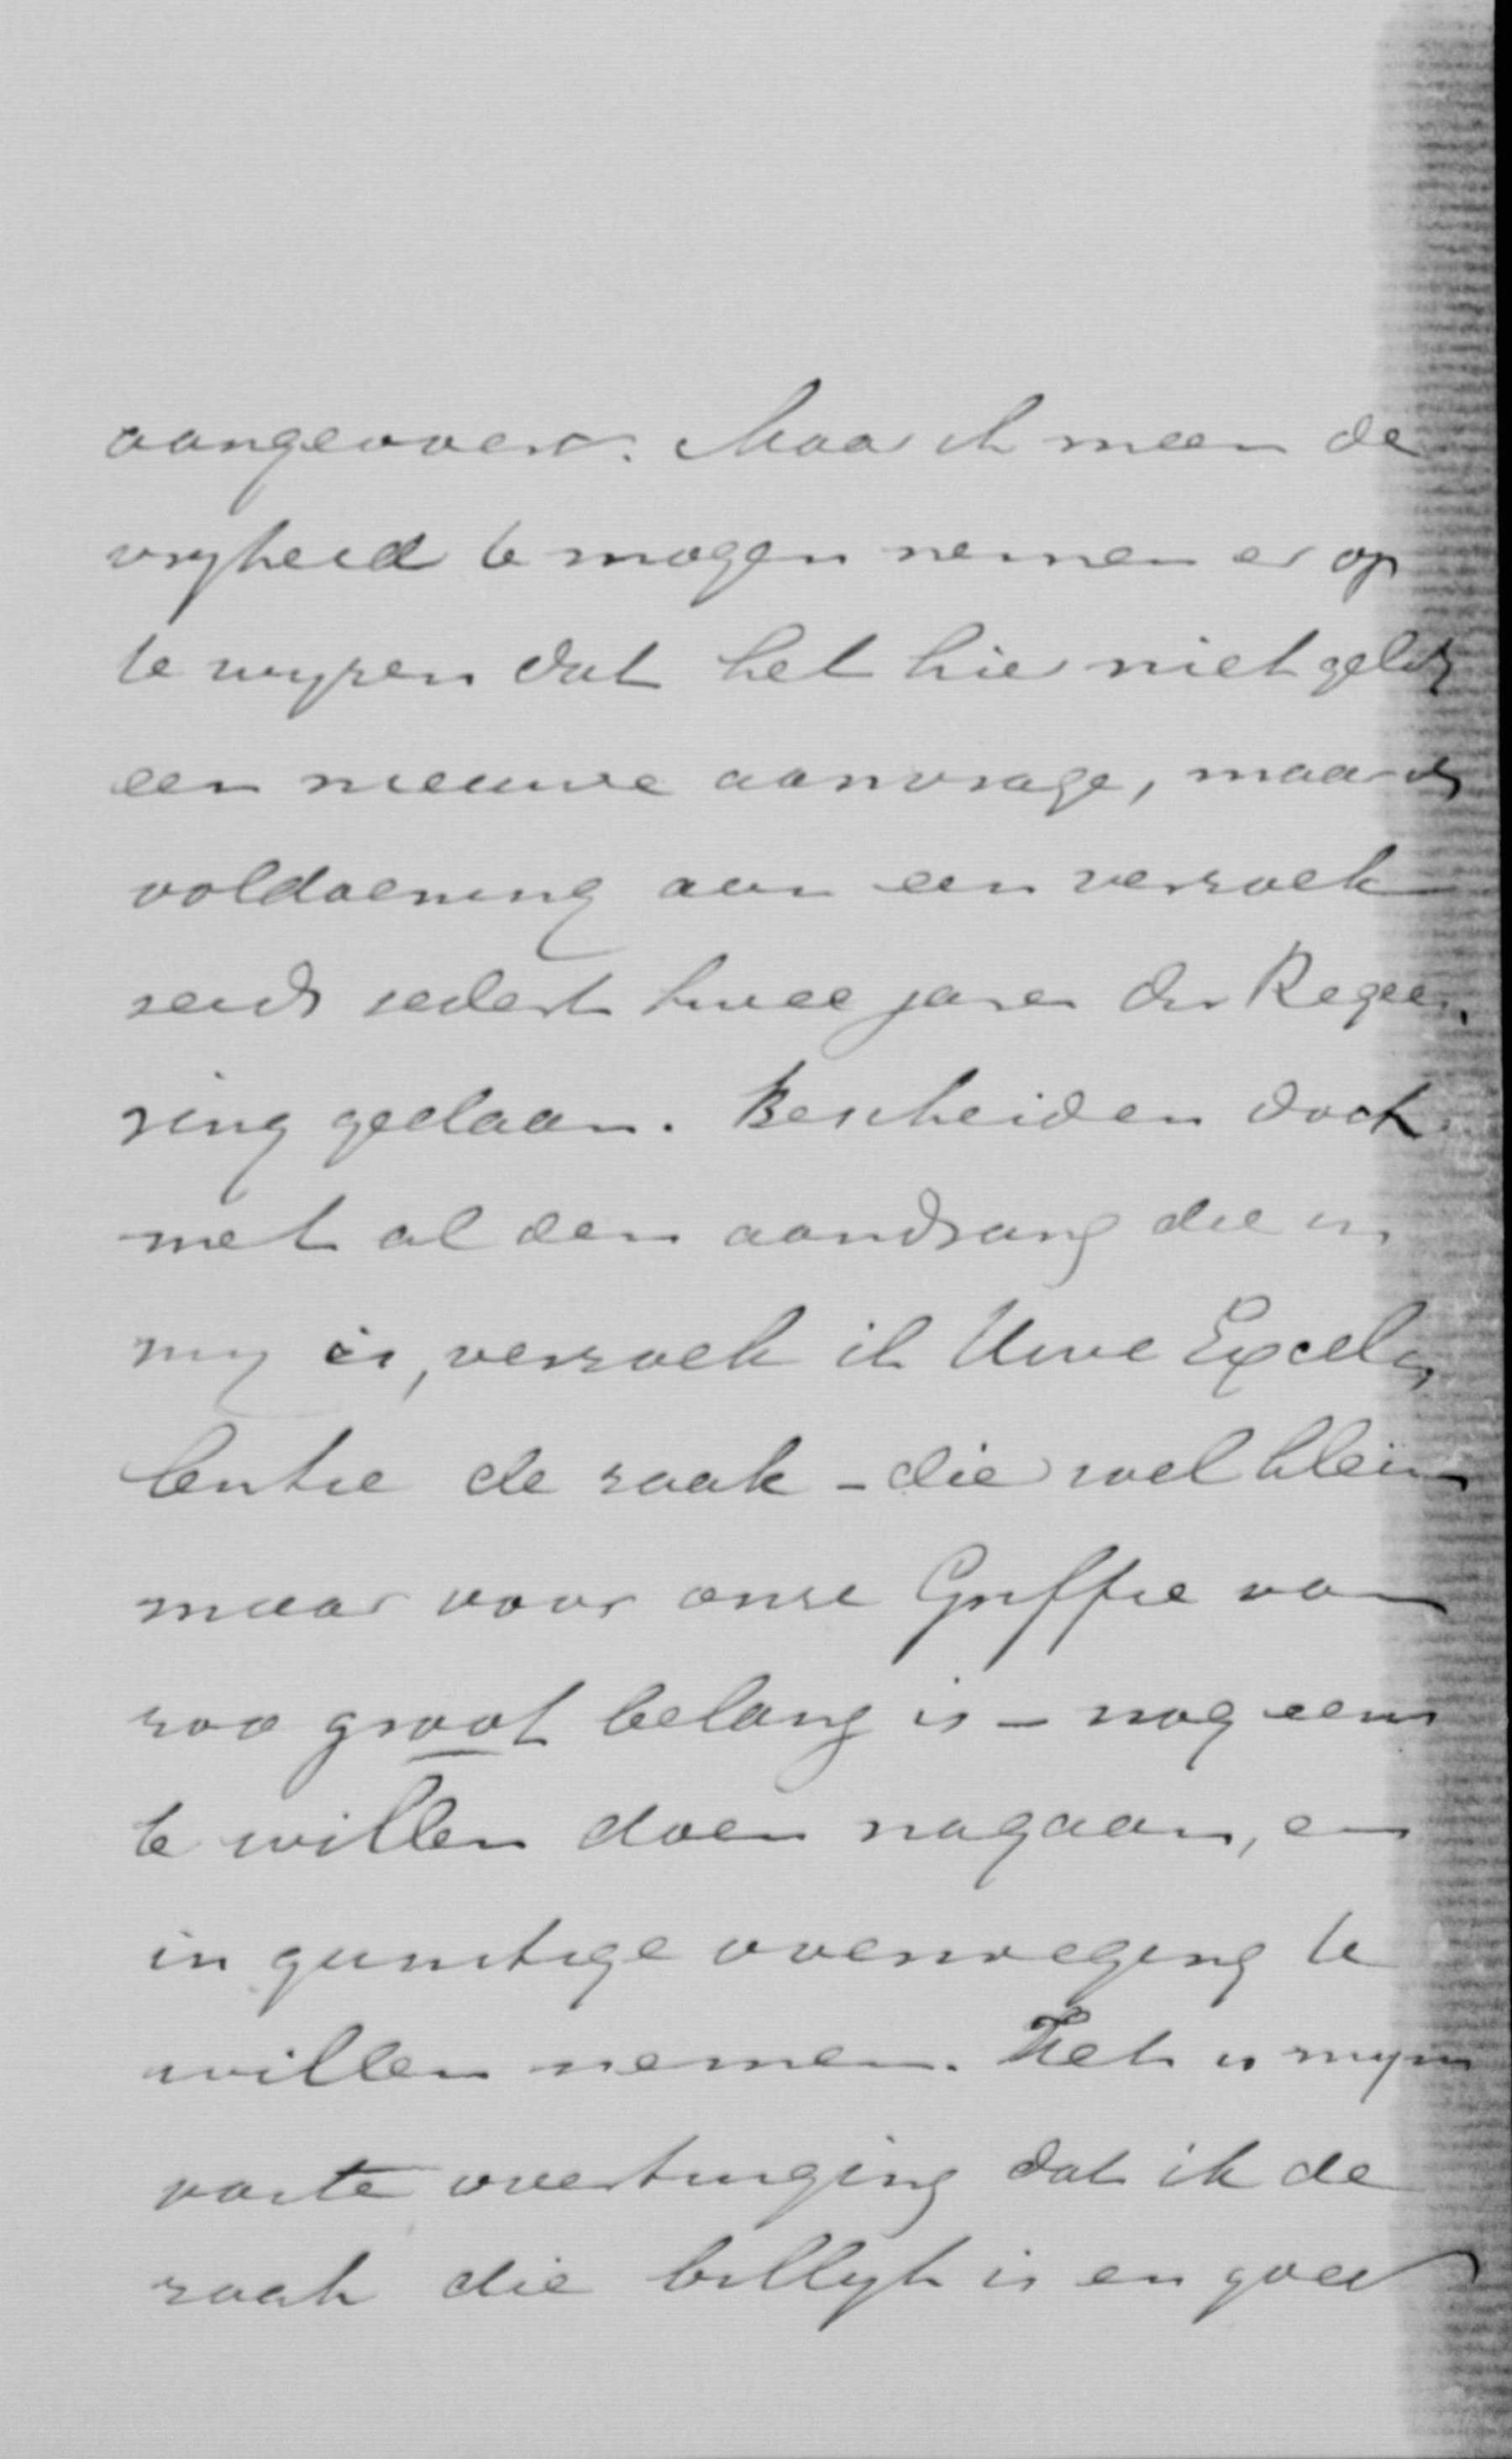 aangevoerd. Maar ik meen de
vryheid te mogen nemen er op
te wyzen dat het hier niet geldt
een nieuwe aanvrage, maar de
voldoening aan een verzoek
reeds sedert twee jaren der Regee-
ring gedaan. Bescheiden doch
met al den aandrang die in
my is, verzoek ik Uwe Excel-
lentie de zaak – die wel klein
maar voor onze Griffie van
zoo groot belang is – nog eens
te willen doen nagaan, en
in gunstige overweging te
willen nemen. Het is myn
vaste overtuiging dat ik de
zaak die billyk is en goed